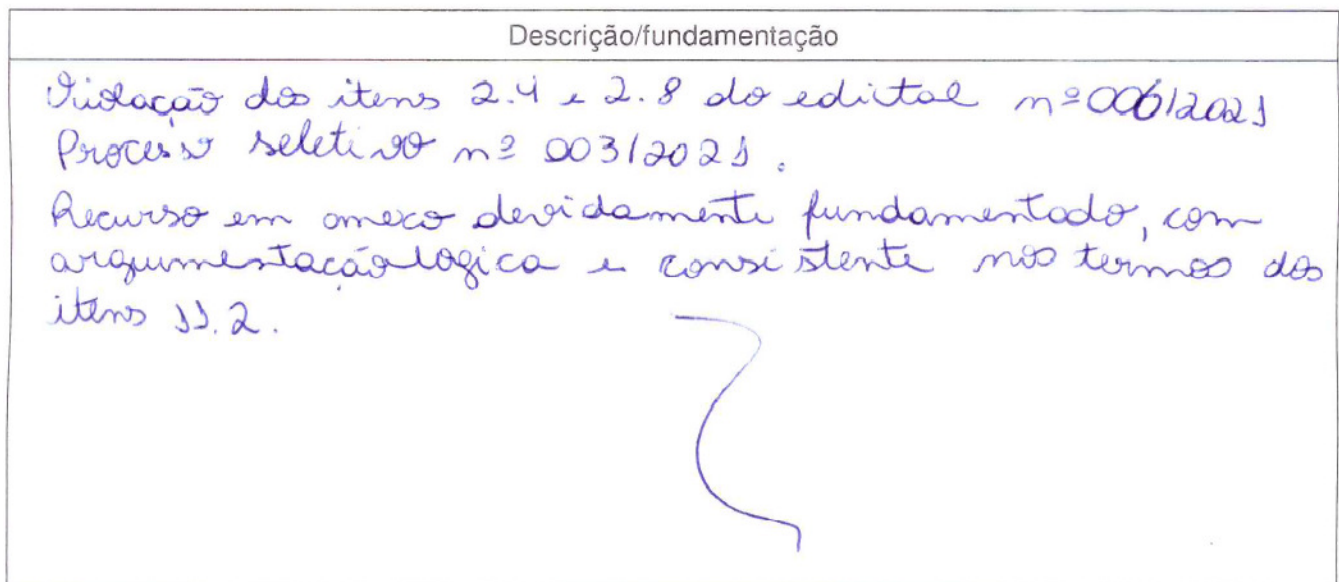 Descrição/fundamentação
Violação dos itens 2.4 e 2.8 do edictal nº 006/2021
Processo seletivo nº 003/2021.
Recurso em anexo devidamente fundamentado, com
argumentação logica e consistente nos termos dos
itens 11.2.